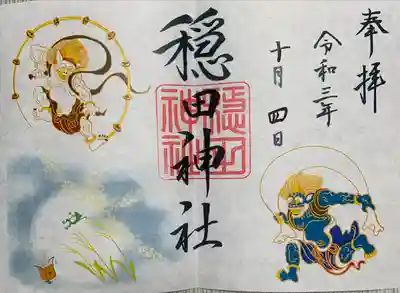 奉拝
令和三年
十月四日
穏田神社
穏田
神社